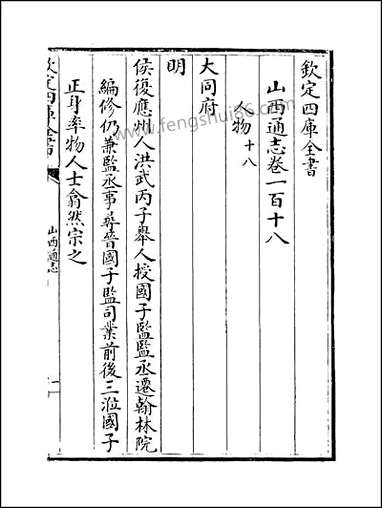 欽定四庫全書
山西通志卷一百十八
人物十八
大同府
明
侯復應州人洪武丙子舉人授國子監監丞遷翰林院
編修仍兼監丞事尋晉國子監司業前後三涖國子
正身率物人士翕然宗之
欽定四庫全書
山西通志
一
www.fengshui86.com